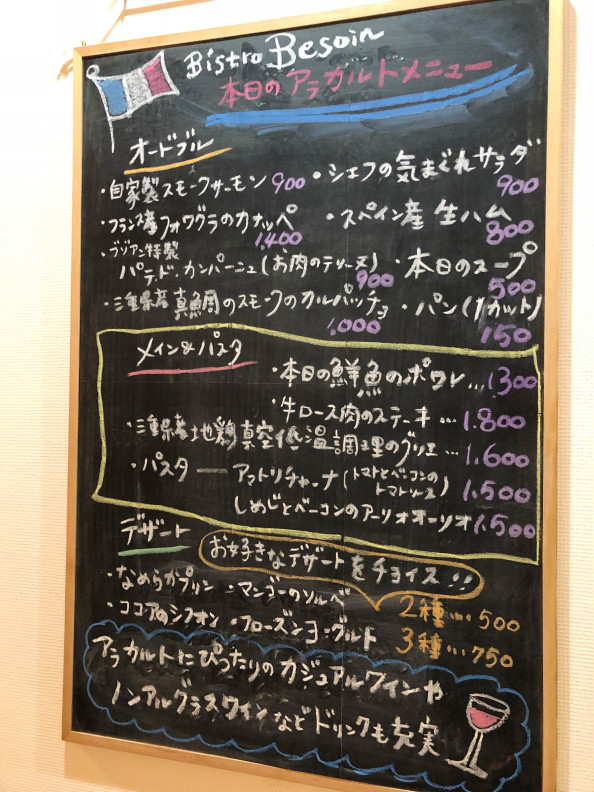 Bistro Besoin
本日のアラカルトメニュー
オードブル
・自家製スモークサーモン 900
・シェフの気まぐれサラダ 900
・フランス産フォワグラのカナッペ 1,400
・スペイン産 生ハム 800
・ブゾアン特製
パテ・ド・カンパーニュ(お肉のテリーヌ) 900
・本日のスープ 500
・三重県産真鯛のスモークのカルパッチョ 1,000
・パン(1カット) 150
メイン&パスタ
・本日の鮮魚のポワレ…1,300
・牛ロース肉のステーキ…1,800
・三重県産地鶏真空低温調理のグリエ…1,600
・パスタ ― アマトリチャーナ(トマトとベーコンのトマトソース) 1,500
しめじとベーコンのアーリオオーリオ 1,500
デザート
お好きなデザートをチョイス!!
・なめらかプリン ・マンゴーのソルベ
2種…500
・ココアのシフォン ・フローズンヨーグルト
3種…750
アラカルトにぴったりのカジュアルワインや
ノンアルグラスワインなどドリンクも充実